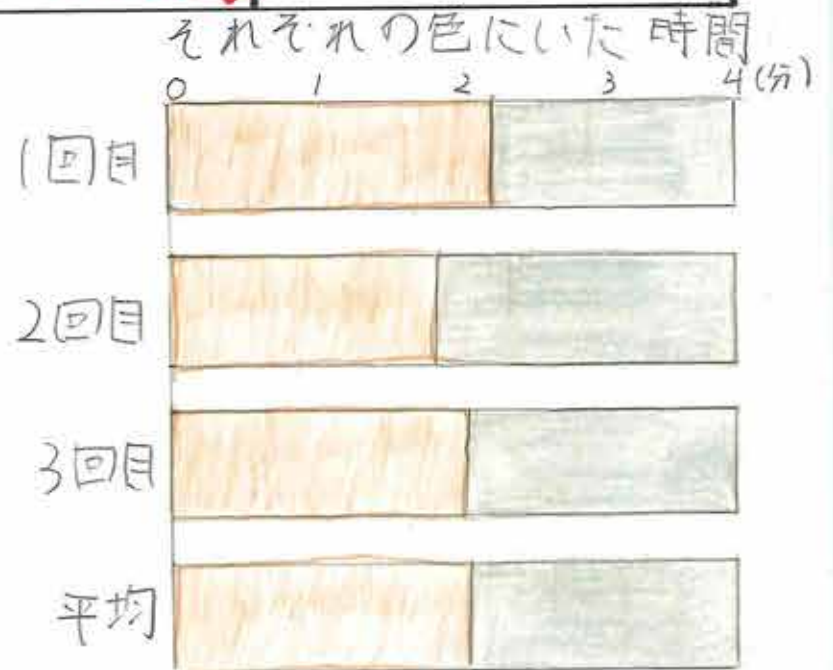 それぞれの色にいた時間
0 1 2 3 4(分)
1回目
2回目
3回目
平均